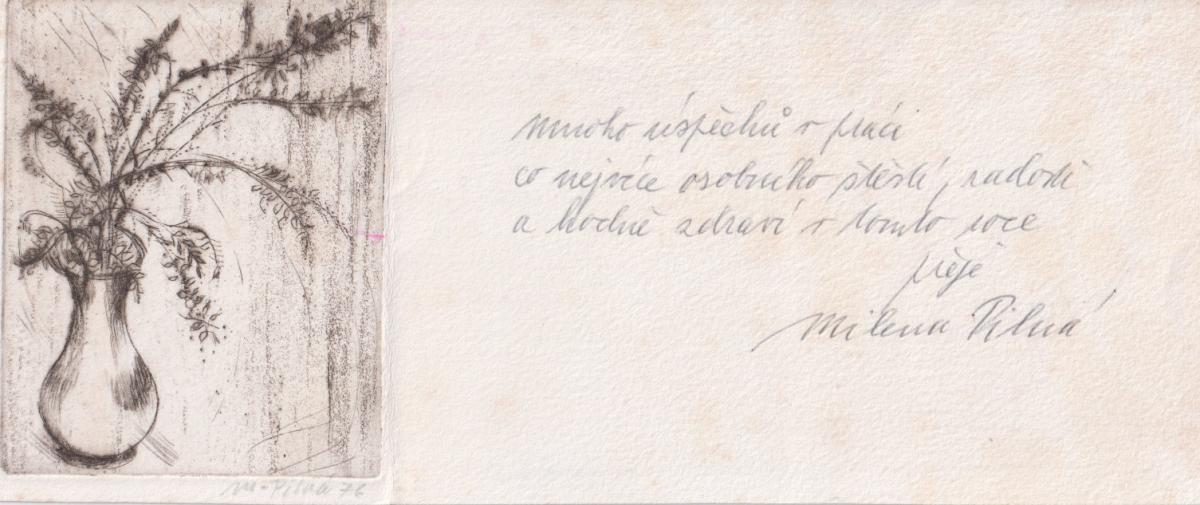 mnoho úspěchů v práci
co nejvíce osobního štěstí, radosti
a hodně zdraví v tomto roce
přeje
Milena Pilná
M-Pilná 76